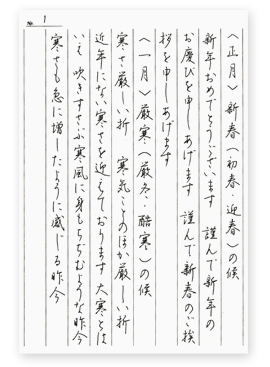 No. 1
〈正月〉新春(初春・迎春)の候
新年おめでとうございます 謹んで新年の
お慶びを申しあげます 謹んで新春のご挨
拶を申しあげます
〈一月〉厳寒(厳冬・酷寒)の候
寒さ厳しい折 寒気ことのほか厳しい折
近年にない寒さを迎えております 大寒とは
いえ 吹きすさぶ寒風に身もちぢむような昨今
寒さも急に増したように感じる昨今